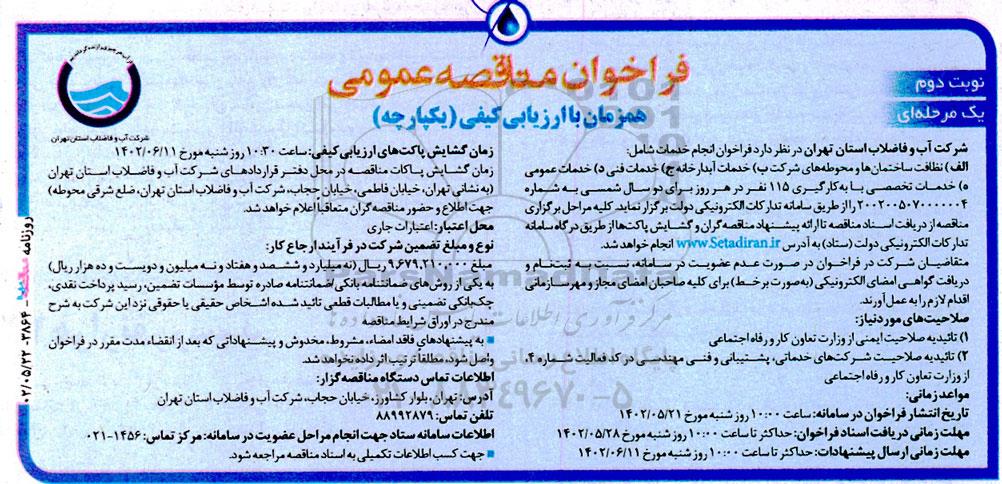 فراخوان مناقصه عمومی
همزمان با ارزیابی کیفی (یکپارچه)
نوبت دوم
یک مرحله‌ای
شرکت آب و فاضلاب استان تهران
شرکت آب و فاضلاب استان تهران در نظر دارد فراخوان انجام خدمات شامل:
الف) نظافت ساختمان‌ها و محوطه‌های شرکت ب) خدمات آبدارخانه ج) خدمات فنی د) خدمات عمومی
ه) خدمات تخصصی با به‌کارگیری ۱۱۵ نفر در هر روز برای دو سال شمسی به شماره
۲۰۰۲۰۰۵۰۷۰۰۰۰۰۰۴ را از طریق سامانه تدارکات الکترونیکی دولت برگزار نماید. کلیه مراحل برگزاری
مناقصه از دریافت اسناد مناقصه تا ارائه پیشنهاد مناقصه‌گران و گشایش پاکت‌ها از طریق درگاه سامانه
تدارکات الکترونیکی دولت (ستاد) به آدرس www.Setadiran.ir انجام خواهد شد.
متقاضیان شرکت در فراخوان در صورت عدم عضویت در سامانه، نسبت به ثبت‌نام و
دریافت گواهی امضای الکترونیکی (به‌صورت برخط) برای کلیه صاحبان امضای مجاز و مهرسازمانی
اقدام لازم را به‌عمل آورند.
صلاحیت‌های مورد نیاز:
۱) تائیدیه صلاحیت ایمنی از وزارت تعاون کار و رفاه اجتماعی
۲) تائیدیه صلاحیت شرکت‌های خدماتی، پشتیبانی و فنی مهندسی در کد فعالیت شماره ۴،
از وزارت تعاون کار و رفاه اجتماعی
مواعد زمانی:
تاریخ انتشار فراخوان در سامانه: ساعت ۱۰:۰۰ روز شنبه مورخ ۱۴۰۲/۰۵/۲۱
مهلت زمانی دریافت اسناد فراخوان: حداکثر تا ساعت ۱۰:۰۰ روز شنبه مورخ ۱۴۰۲/۰۵/۲۸
مهلت زمانی ارسال پیشنهادات: حداکثر تا ساعت ۱۰:۰۰ روز شنبه مورخ ۱۴۰۲/۰۶/۱۱
زمان گشایش پاکت‌های ارزیابی کیفی: ساعت ۱۰:۳۰ روز شنبه مورخ ۱۴۰۲/۰۶/۱۱
زمان گشایش پاکات مناقصه در محل دفتر قراردادهای شرکت آب و فاضلاب استان تهران
(به نشانی تهران، خیابان فاطمی، خیابان حجاب، شرکت آب و فاضلاب استان تهران، ضلع شرقی محوطه)
جهت اطلاع و حضور مناقصه‌گران متعاقباً اعلام خواهد شد.
محل اعتبار: اعتبارات جاری
نوع و مبلغ تضمین شرکت در فرآیند ارجاع کار:
مبلغ ۹,۶۷۹,۲۱۰,۰۰۰ ریال (نه میلیارد و ششصد و هفتاد و نه میلیون و دویست و ده هزار ریال)
به یکی از روش‌های ضمانتنامه بانکی/ضمانتنامه صادره توسط مؤسسات تضمین، رسید پرداخت نقدی،
چک‌بانکی تضمینی و یا مطالبات قطعی تائید شده اشخاص حقیقی یا حقوقی نزد این شرکت به شرح
مندرج در اوراق شرایط مناقصه
به پیشنهادهای فاقد امضاء، مشروط، مخدوش و پیشنهاداتی که بعد از انقضاء مدت مقرر در فراخوان
واصل شود، مطلقاً ترتیب اثر داده نخواهد شد.
اطلاعات تماس دستگاه مناقصه‌گزار:
آدرس: تهران، بلوار کشاورز، خیابان حجاب، شرکت آب و فاضلاب استان تهران
تلفن تماس: ۸۸۹۹۲۸۷۹
اطلاعات سامانه ستاد جهت انجام مراحل عضویت در سامانه: مرکز تماس: ۱۴۵۶-۰۲۱
جهت کسب اطلاعات تکمیلی به اسناد مناقصه مراجعه شود.
روزنامه
۰۲/۰۵/۲۲-۳۸۶۴
ParsNamadData